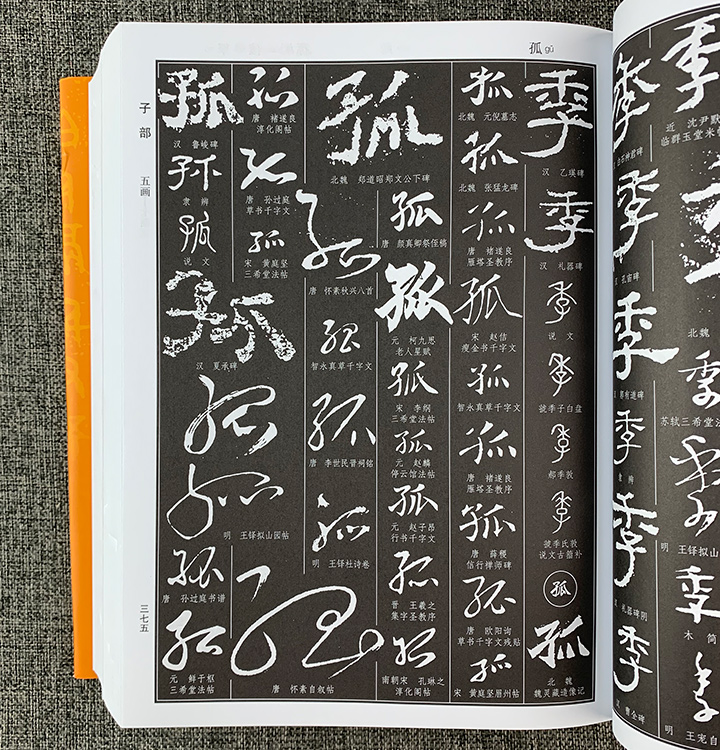 孤 gū
子部
五画
三七五
季
近 沈尹默
临群玉堂米
北魏
季
苏轼三希堂法
季
明 王铎拟山
季
木简
季
明 王宠自
季
季
汉 孔宙碑
季
季
隶辨
季
汉 礼器碑阴
季
汉 曹全碑
季
汉 乙瑛碑
季
汉 礼器碑
季
说文
季
虢季子白盘
季
郝季敦
季
虢季氏敦
说文古籀补
孤
孤
北魏
魏灵藏造像记
孤
北魏 元倪墓志
孤
北魏 张猛龙碑
孤
唐 褚遂良
雁塔圣教序
孤
宋 赵佶
瘦金书千字文
孤
智永真草千字文
孤
唐 褚遂良
雁塔圣教序
孤
唐 薛稷
信行禅师碑
孤
唐 欧阳询
草书千字文残贴
孤
宋 黄庭坚眉州帖
孤
北魏 郑道昭郑文公下碑
孤
唐 颜真卿祭侄稿
孤
元 柯九思
老人星赋
孤
宋 李纲
三希堂法帖
孤
元 赵麟
停云馆法帖
孤
元 赵子昂
行书千字文
孤
晋 王羲之
集字圣教序
孤
南朝宋 孔琳之
淳化阁帖
孤
唐 怀素秋兴八首
孤
智永真草千字文
孤
唐 李世民晋祠铭
孤
明 王铎杜诗卷
孤
唐 怀素自叙帖
孤
唐 褚遂良
淳化阁帖
孤
唐 孙过庭
草书千字文
孤
宋 黄庭坚
三希堂法帖
孤
汉 鲁峻碑
孤
隶辨
孤
说文
孤
汉 夏承碑
孤
孤
明 王铎拟山园帖
孤
唐 孙过庭书谱
孤
元 鲜于枢
三希堂法帖